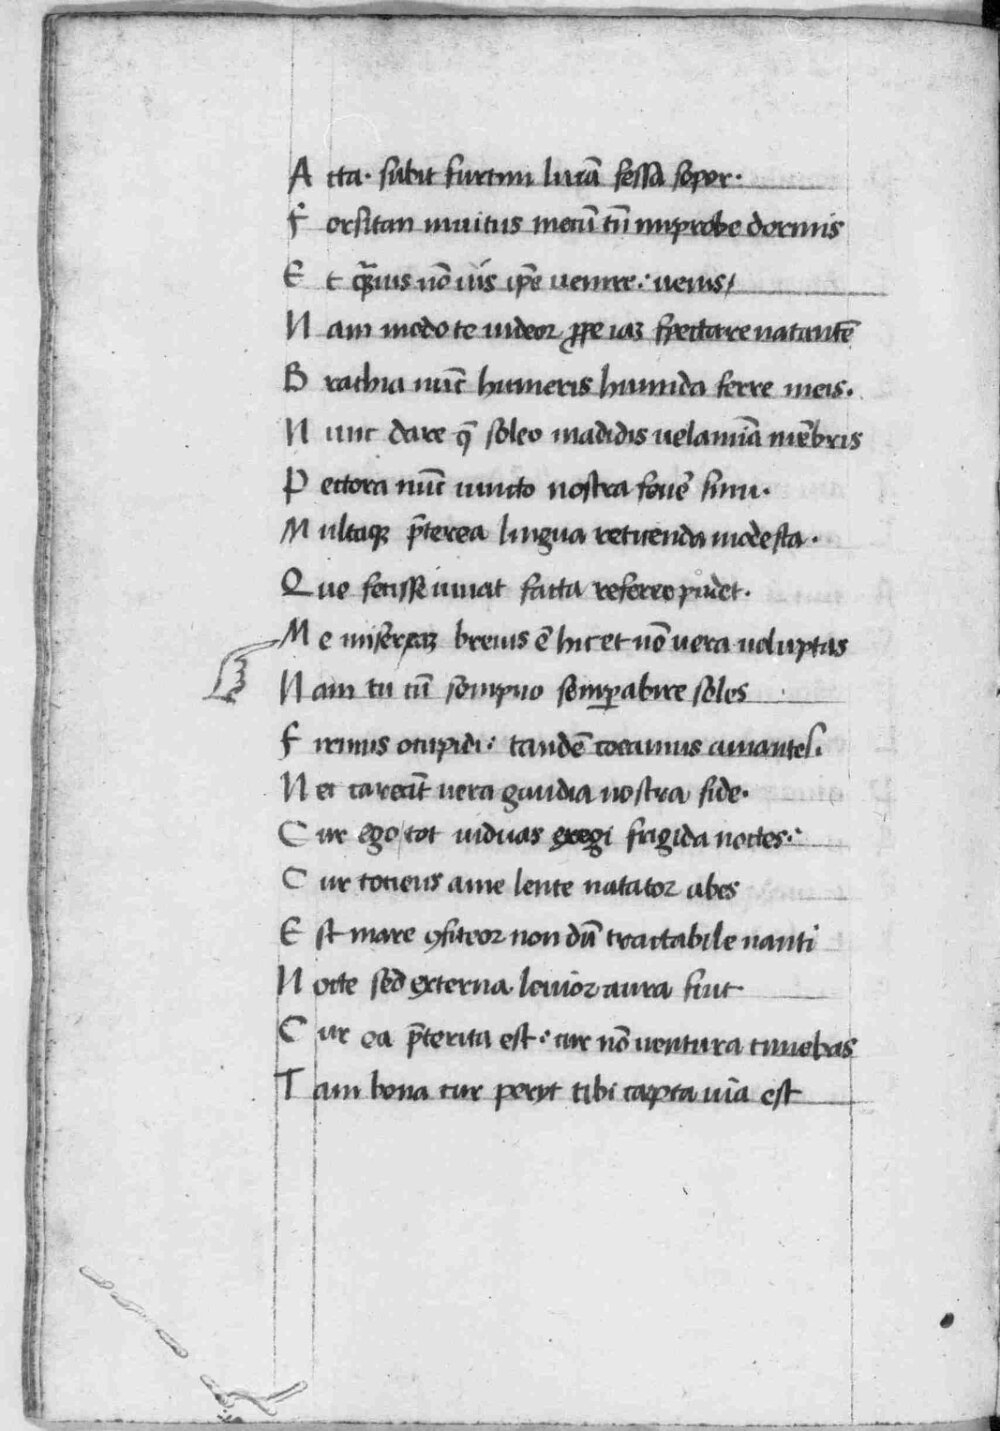 A cta. subit furtim lucā fessa sopor.
F orsitan inuitus mecū tn̄ improbe dormis
E t q̄uis nō uis ip̄e uenire: uenis/
N am modo te uideor ꝓpe iaꝫ spectare natantē
B rachia nūc humeris humida ferre meis.
N unc dare q̄ soleo madidis uelamīa mēbris
P ectora nūc iuncto nostra fouē sinu.
M ultaqꝫ p̄terea lingua reticenda modesta.
Q ue fecisse iuuat facta referre pudet.
M e miseraꝫ breuis ē hic et nō uera uoluptas
N am tu cū sompno semꝑ abire soles
F irmius o cupidi: tandē coeamus amantes.
N ec careāt uera gaudia nostra fide.
C ur ego tot uiduas exegi frigida noctes:
C ur totiens a me lente natator abes
E st mare ꝯfiteor non dū tractabile nanti
N octe sed externa leuior aura fuit
C ur ea p̄terita est: cur nō uentura timebas
T am bona cur peryt tibi capta uīa est